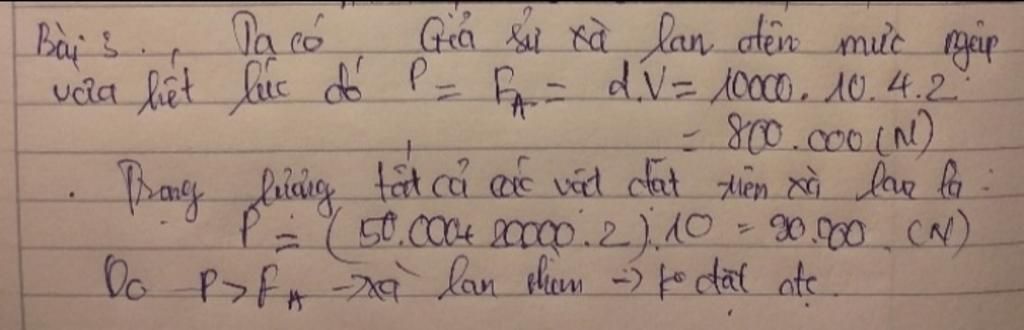 Bài 3. Ta có Giả sử xà lan đến mức ngập
vừa hết lúc đó P = F_A = d.V = 10000.10.4.2
= 800.000 (N)
. Trọng lượng tất cả các vật đặt trên xà lan là:
P = (50.000+ 20000.2).10 = 90.000 (N)
Do P > F_A → xà lan chìm → ko đặt đc.